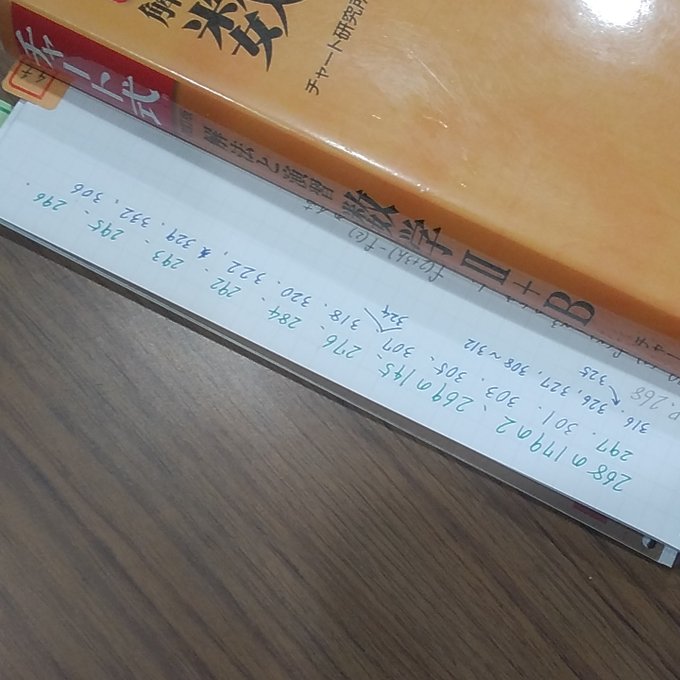 解
数
チャート研究所
チャート式
解法と演習 数学Ⅱ+B
チャート
P.268
325
316. 326, 327, 308~312
324
297. 301. 303. 305. 307 318. 320. 322, 329. 332, 306
268 の 179 の 2. 269 の 145. 276. 284. 292. 293. 295. 296.